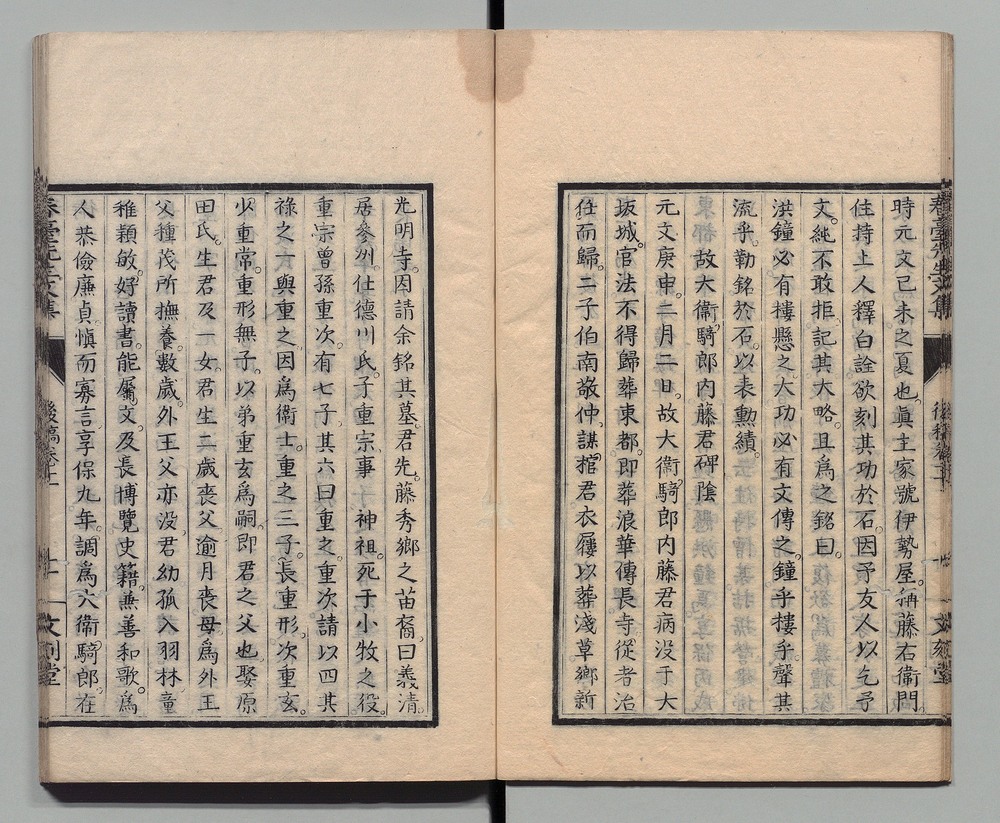 時元文己未之夏也眞主家號伊勢屋。稱藤右衞門
住持上人釋白詮欲刻其功於石。因予友人以乞予
文。純不敢拒記其大略。且爲之銘曰。
洪鐘必有樓懸之大功必有文傳之。鐘乎樓乎聲其
流乎。勒銘於石。以表勳績。
故大衞騎郎内藤君碑陰
元文庚申。二月二日。故大衞騎郎内藤君病没于大
坂城。官法不得歸葬東都。即葬浪華傳長寺。從者治
任而歸。二子伯南敬仲。謀棺君衣屨。以葬淺草鄉新
光明寺。因請余銘其墓。君先。藤秀鄉之苗裔。曰義清。
居參州。仕德川氏。子重宗事 神祖。死于小牧之役。
重宗曾孫重次。有七子。其六曰重之。重次請以四其
祿之六與重之。因爲衞士。重之三子。長重形。次重玄。
少重常。重形無子。以弟重玄爲嗣。即君之父也。娶原
田氏。生君及一女。君生二歲喪父。逾月喪母。爲外王
父種茂所撫養。數歲。外王父亦没。君幼孤。入羽林。童
稚穎敏。好讀書。能屬文。及長博覽史籍。兼善和歌。爲
人恭儉廉貞。愼而寡言。享保九年。調爲大衞騎郎。在
春臺先生文集
後稿卷十
文刻堂